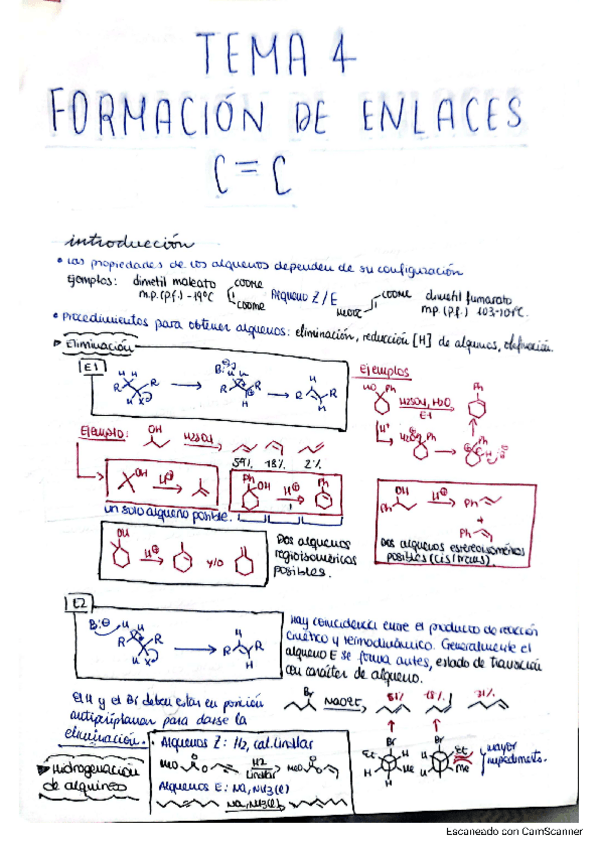 TEMA 4
FORMACIÓN DE ENLACES
C=C
introducción
• Las propiedades de los alquenos dependen de su configuración
Ejemplos: dimetil maleato COOMe Alqueno Z / E COOMe dimetil fumarato
m.p. (p.f.) -19ºC COOMe MeOOC m.p. (p.f.) 103-104ºC.
• Procedimientos para obtener alquenos: eliminación, reducción [H] de alquinos, olefinación.
Eliminación
E1
B:
H H
R R
H X
Ejemplos
HO Ph
H2SO4, H2O
E1
Ph
H+
H2O Ph
Ejemplo: OH H2SO4
54% 18% 2%
OH H⊕
Ph OH H⊕ Ph
un solo alqueno posible.
OH H⊕ Ph
+
Ph
Dos alquenos estereoisoméricos
posibles (cis/trans).
OH
H⊕ y/o
Dos alquenos
regioisoméricos
posibles.
E2
B:⊖ H H
R R
H X
Hay coincidencia entre el producto de reacción
cinético y termodinámico. Generalmente el
alqueno E se forma antes, estado de transición
con carácter de alqueno.
El H y el Br deben estar en posición
antiperiplanar para darse la
eliminación.
Br NaOEt 51% 18% 31%
Br Br
Et H Me H H Et Me
mayor
impedimento.
Hidrogenación
de alquinos
• Alquenos Z: H2, cat. Lindlar
MeO O H2 Lindlar MeO O
Alquenos E: Na, NH3(l)
Na, NH3(l)
Escaneado con CamScanner